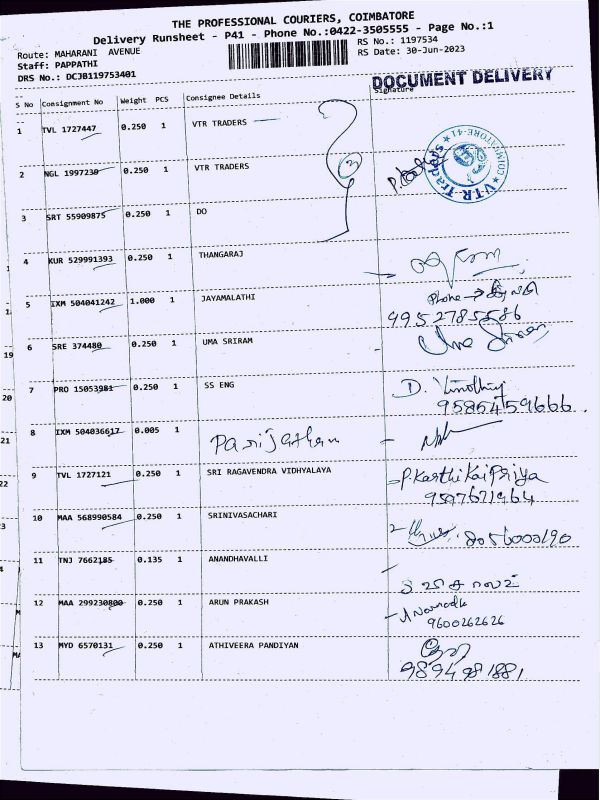 THE PROFESSIONAL COURIERS, COIMBATORE
Delivery Runsheet - P41 - Phone No.:0422-3505555 - Page No.:1
Route: MAHARANI AVENUE
Staff: PAPPATHI
DRS No.: DCJB119753401
RS No.: 1197534
RS Date: 30-Jun-2023
DOCUMENT DELIVERY
S No Consignment No Weight PCS Consignee Details Signature
1 TVL 1727447 0.250 1 VTR TRADERS
2 NGL 1997230 0.250 1 VTR TRADERS
3 SRT 55909875 0.250 1 DO
4 KUR 529991393 0.250 1 THANGARAJ
5 IXM 504041242 1.000 1 JAYAMALATHI Phone
4952785586
6 SRE 374480 0.250 1 UMA SRIRAM Uma Sriram
7 PRO 15053981 0.250 1 SS ENG D. Vinothiy
9585459666
8 IXM 504036617 0.005 1 Parijatham
9 TVL 1727121 0.250 1 SRI RAGAVENDRA VIDHYALAYA P.KarthiKaiPriya
9597671964
10 MAA 568990584 0.250 1 SRINIVASACHARI 8056000190
11 TNJ 7662185 0.135 1 ANANDHAVALLI
12 MAA 299230800 0.250 1 ARUN PRAKASH
9600262626
13 MYD 6570131 0.250 1 ATHIVEERA PANDIYAN
9894981881